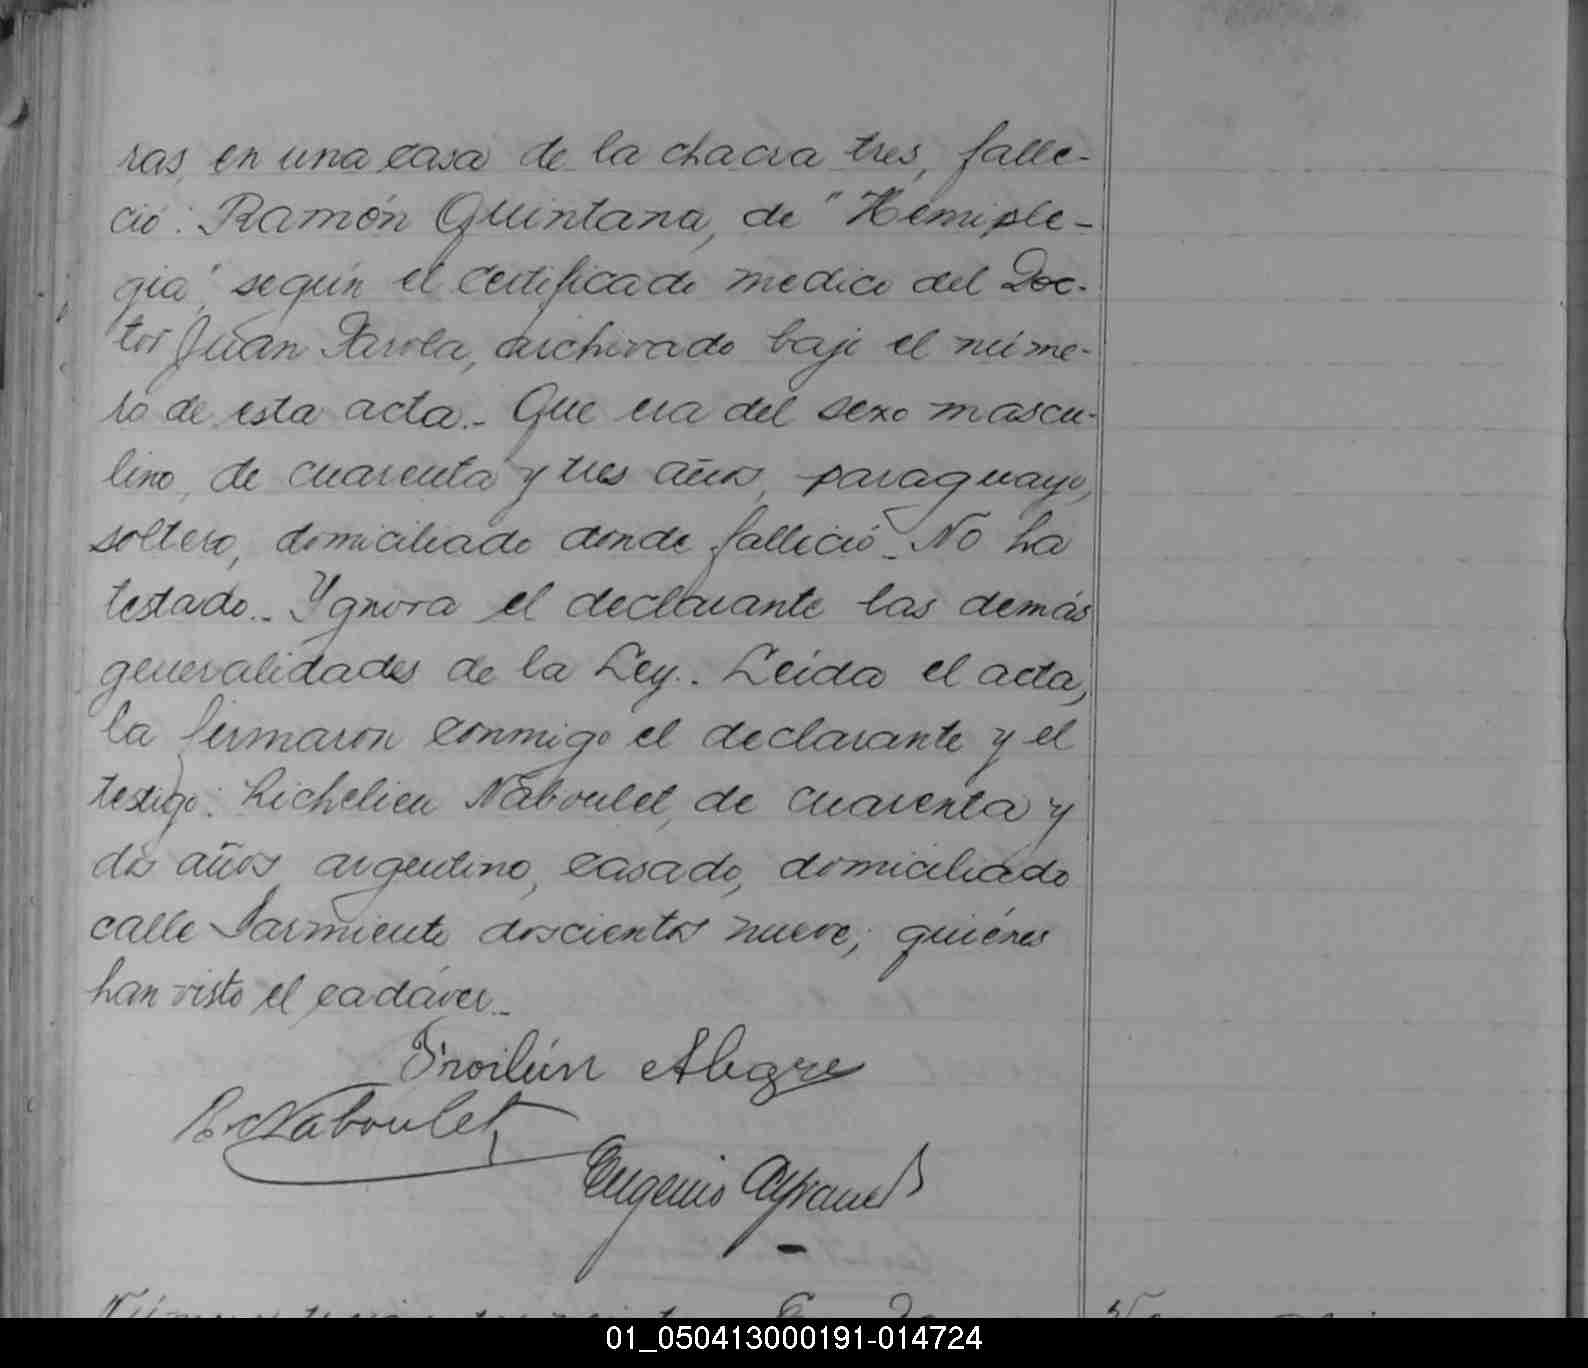 ras, en una casa de la chacra tres, falle-
ció: Ramón Quintana, de "Hemiple-
gia", según el certificado medico del Doc-
tor Juan Parola, archivado bajo el núme-
ro de esta acta.- Que era del sexo mascu-
lino, de cuarenta y tres años, paraguayo,
soltero, domiciliado donde falleció.- No ha
testado.- Ygnora el declarante las demás
generalidades de la Ley.- Leída el acta,
la firmaron conmigo el declarante y el
testigo: Richelieu Naboulet, de cuarenta y
dos años, argentino, casado, domiciliado
calle Sarmiento doscientos nueve; quiénes
han visto el cadáver.-
Froilán Alegre
R. Naboulet
Eugenio
01_050413000191-014724